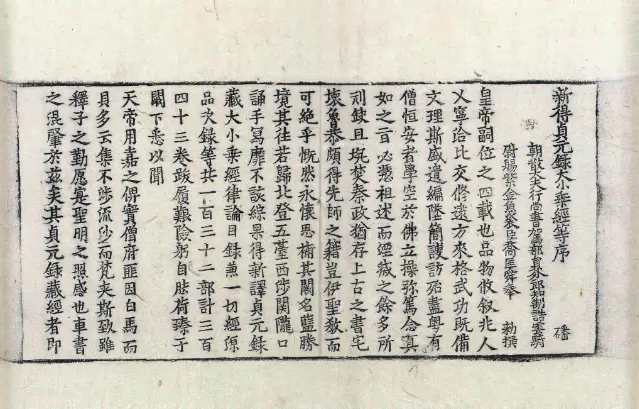 新得貞元錄大小乘經等序　磻
朝散大夫行尚書駕部員外郎知制誥雲騎
尉賜紫金魚袋臣喬匡舜奉　勑撰
皇帝嗣位之四載也品物攸叙兆人
乂寧洽比交修遠方來格武功既備
文理斯盛遺編墜簡謏訪殆盡粤有
僧恒安者學空於佛立操弥篤念真
如之言必憑祖述而煙滅之餘多所
刓缺且坑焚秦政猶存上古之書宅
壞魯恭頗得先師之籍豈伊聖教而
可絕乎慨然永懷思補其闕名藍勝
境其往若歸北登五臺西涉関隴口
誦手寫靡不該綜果得新譯貞元錄
藏大小乘經律論目錄兼一切經源
品次錄等共一百三十二部計三百
四十三卷跋履艱險躬自胠荷臻于
闕下悉以聞
天帝用嘉之俾寘僧府匪因白馬而
貝多云集不涉流沙而梵夾斯致雖
釋子之勤愿寔聖明之照感也車書
之混肇於茲矣其貞元錄藏經者即